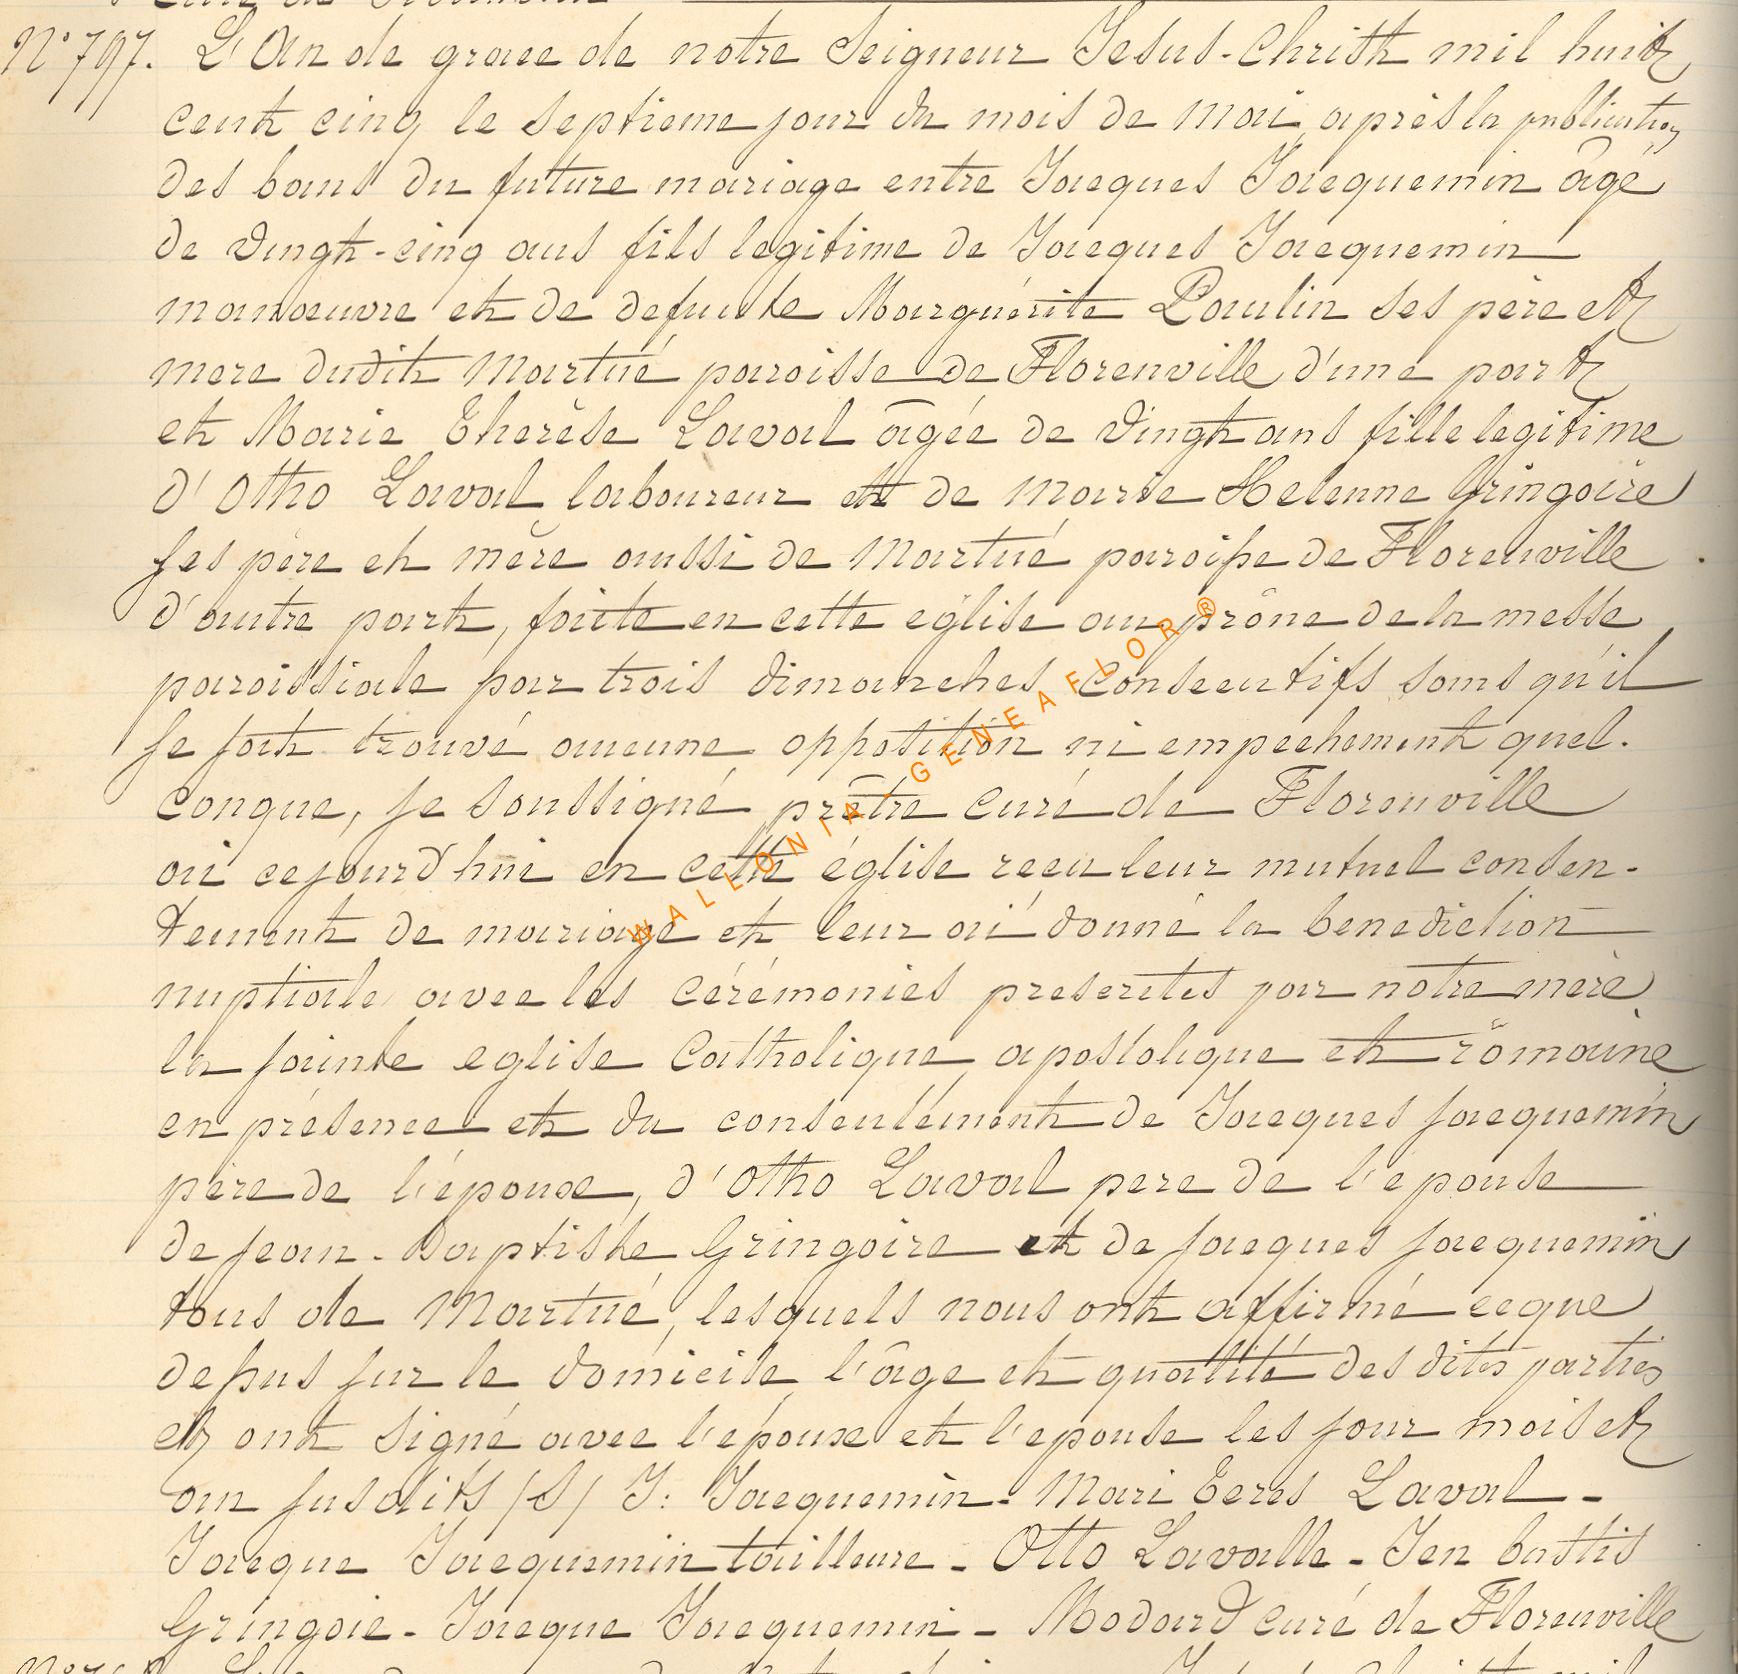 N° 797. L'An de grace de notre Seigneur Jesus-Christ mil huit
cent cinq le septieme jour du mois de Mai, après la publication
des bans du future mariage entre Jacques Jacquemin âgé
de vingt-cinq ans fils legitime de Jacques Jacquemin
manœuvre et de defunte Marguérite Paulin ses père et
mere dudit Martué paroisse de Florenville d'une part
et Marie Therèse Laval âgée de vingt ans fille legitime
d'Otho Laval laboureur et de Marie Helenne Gringoire
ses père et mère aussi de Martué paroisse de Florenville
d'autre part, faite en cette eglise au prône de la messe
paroissiale par trois dimanches consecutifs sans qu'il
se soit trouvé aucune opposition ni empechement quel-
conque, je soussigné prêtre curé de Florenville
ai cejourd'hui en cette église recu leur mutuel consen-
tement de mariage et leur ai donné la benediction
nuptiale avec les cérémonies prescrites par notre mère
la sainte eglise Catholique apostolique et romaine
en présence et du consentement de Jacques Jacquemin
père de l'épouse, d'Otho Laval pere de l'epouse
de Jean-Baptiste Gringoire et de Jacques Jacquemin
tous de Martué, lesquels nous ont affirmé ceque
depus sur le domicile, l'âge et qualité des dites parties
et ont signé avec l'époux et l'epouse les jour mois et
an susdits /S/ J: Jacquemin - Mari Teres Laval -
Jacque Jacquemin tailleure - Otto Lavalle - Jen bastis
Gringoie - Jacque Jacquemin - Modard curé de Florenville
WALLONIA - GENEAFLOR®